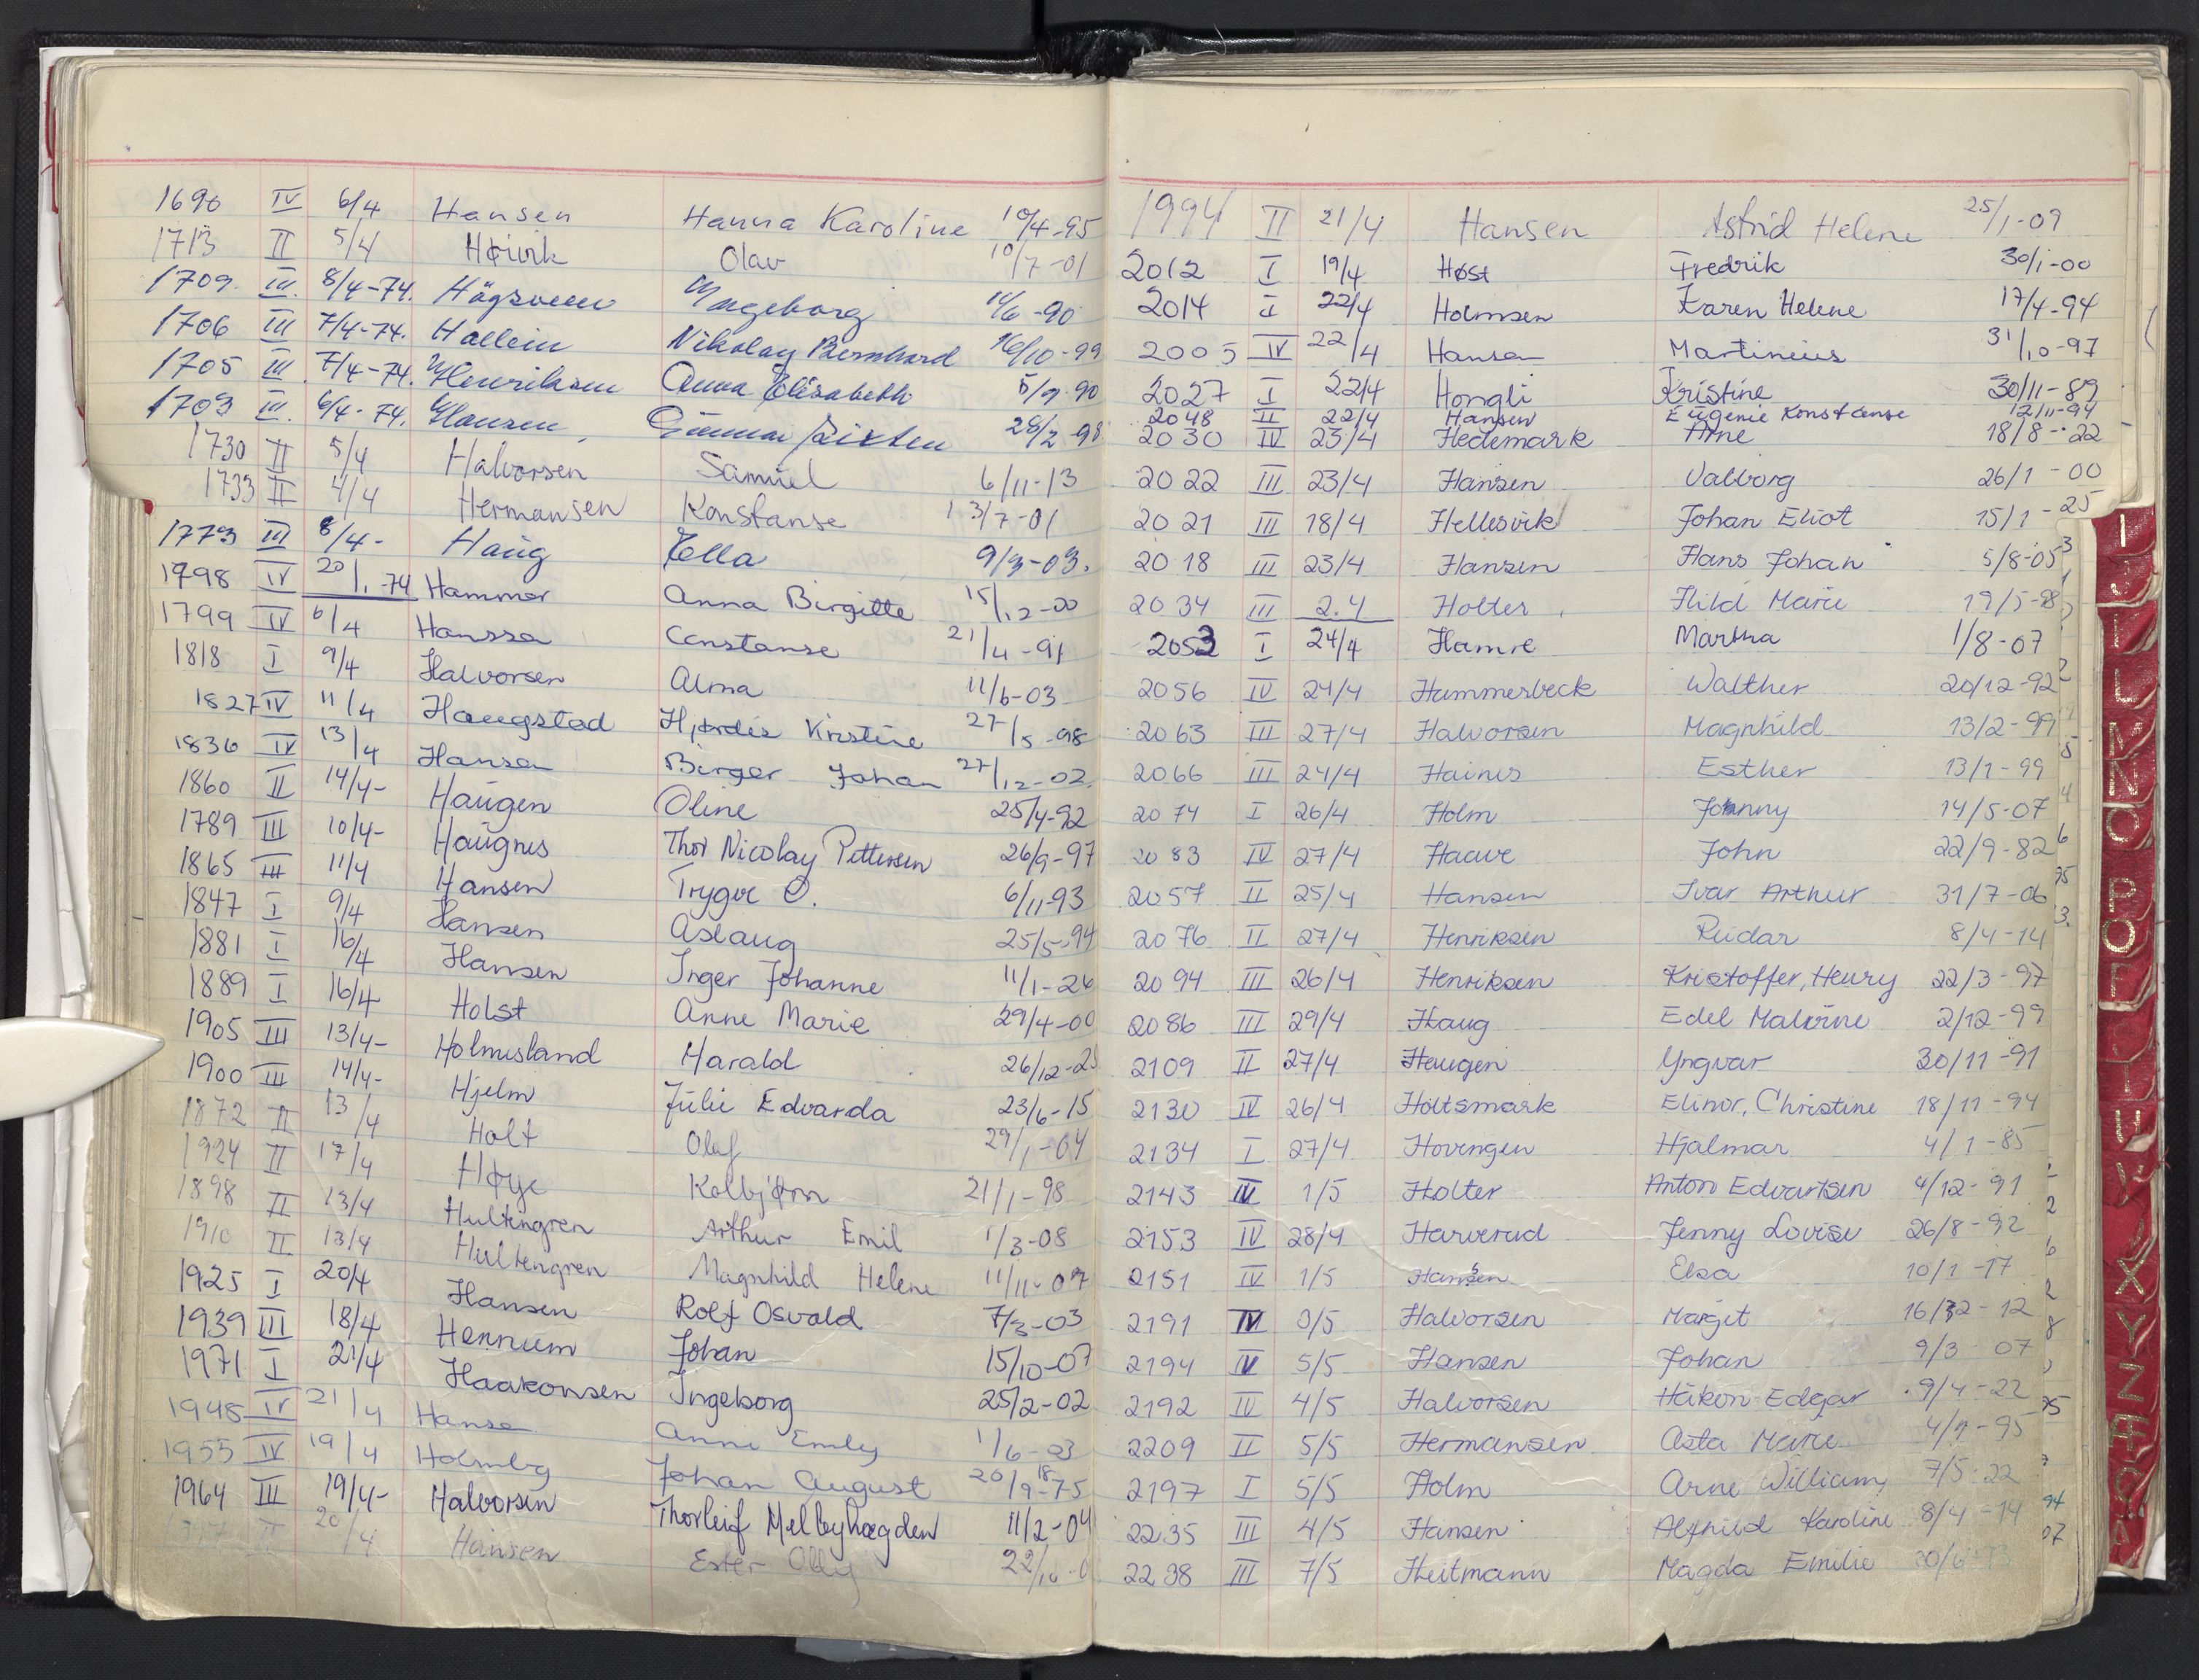 1696 IV 6/4 Hansen Hanna Karoline 10/4-95
1713 II 5/4 Høivik Olav 10/7-01
1709. III. 8/4-74. Ingeborg -90
1706 III 7/4-74. Hallein Nikolay Bernhard 16/10-99
1705 III. 7/4-74. Henriksen Anna Elisabeth 5/9-90
1703 III. 6/4-74. Hansen, Gunnar Sixten 28/2-98
1730 II 5/4 Halvorsen Samuel 6/11-13
1733 II 4/4 Hermansen Konstanse 13/7-01
1773 III 8/4- Haug Ella 9/3-03.
1798 IV 20/1.-74 Hammer Anna Birgitte 15/12-00
1799 IV 6/4 Hanssen Constanse 21/4-91
1818 I 9/4 Halvorsen Alma 11/6-03
1827 IV 11/4 Haugstad Hjørdis Kristine 27/5-98
1836 IV 13/4 Hansen Birger Johan 27/12-02.
1860 II 14/4- Haugen Oline 25/4-92
1789 III 10/4- Haugnes Thor Nicolay Pettersen 26/9-97
1865 III 11/4 Hansen Trygve O. 6/11-93
1847 I 9/4 Hansen Aslaug 25/5-94
1881 I 16/4 Hansen Inger Johanne 11/1-26
1889 I 16/4 Holst Anne Marie 29/4-00
1905 III 13/4- Holmesland Harald 26/12-
1900 III 14/4- Hjelm Julie Edvarda 23/6-15
1872 II 13/4 Holt Olaf 29/1-04
1924 II 17/4 Høye Kolbjørn 21/1-98
1898 II 13/4 Hultengren Arthur Emil 1/3-08
1910 II 13/4 Hultengren Magnhild Helene 11/11-07
1925 I 20/4 Hansen Rolf Osvald 7/3-03
1939 III 18/4 Hennum Johan 15/10-07
1971 I 21/4 Haakonsen Ingeborg 25/2-02
1948 IV 21/4 Hanse Anne Emly 1/6-23
1955 IV 19/4 Holmbg Johan August 20/9-1875
1964 III 19/4- Halvorsen Thorleif Melbyhøgden 11/2-04
II 20/4 Hansen Ester 22/10-
1994 II 21/4 Hansen Astrid Helene 25/1-09
2012 I 19/4 Høst Fredrik 30/1-00
2014 I 22/4 Holmsen Karen Helene 17/4-94
2005 IV 22/4 Hansen Martinius 31/10-97
2027 I 22/4 Hongli Kristine 30/11-89
2048 II 22/4 Hansen Eugenie Konstanse 12/11-94
2030 IV 23/4 Hedemark Arne 18/8-22
2022 III 23/4 Hansen Valborg 26/1-00
2021 III 18/4 Hellesvik Johan Eliot 15/1-25
2018 III 23/4 Hansen Hans Johan 5/8-05
2034 III 2.4 Holter Hild Marie 19/5-
2053 I 24/4 Hamre Martha 1/8-07
2056 IV 24/4 Hammerbeck Walther 20/12-92
2063 III 27/4 Halvorsen Magnhild 13/2-99
2066 III 24/4 Haines Esther 13/1-99
2074 I 26/4 Holm Johnny 14/5-07
2083 IV 27/4 Haave John 22/9-82
2057 II 25/4 Hansen Ivar Arthur 31/7-06
2076 II 27/4 Henriksen Reidar 8/4-14
2094 III 26/4 Henriksen Kristoffer, Henry 22/3-97
2086 III 29/4 Haug Edel Malvine 2/12-99
2109 II 27/4 Haugen Yngvar 30/11-91
2130 IV 26/4 Holtsmark Elinor, Christine 18/11-94
2134 I 27/4 Hovingen Hjalmar 4/1-85
2143 IV 1/5 Holter Anton Edvartsen 4/12-91
2153 IV 28/4 Harverud Jenny Lovise 26/8-92
2151 IV 1/5 Hansen Elsa 10/1-17
2191 IV 3/5 Halvorsen Margit -12
2194 IV 5/5 Hansen Johan 9/3 07
2192 IV 4/5 Halvorsen Håkon Edgar 9/4-22
2209 II 5/5 Hermansen Asta Marie -95
2197 I 5/5 Holm Arne William 7/5-22
2235 III 4/5 Hansen Alfhild Karoline 8/4-14
2238 III 7/5 Heitmann Magda Emilie
I
J
K
L
M
N
O
P
Q
R
X
Y
Z
Æ
Ø